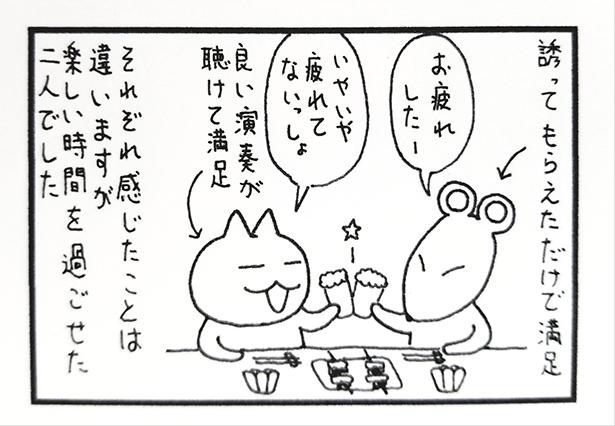 誘ってもらえただけで満足
お疲れ
したー
いやいや
疲れて
ないっしょ
良い演奏が
聴けて満足
それぞれ感じたことは
違いますが
楽しい時間を過ごせた
二人でした